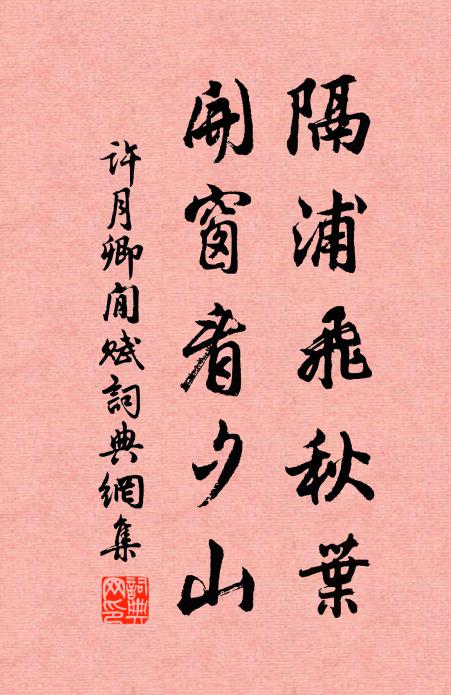 隔浦飛秋葉
開窗看夕山
許月卿閒賦詞典網集
詞典網印